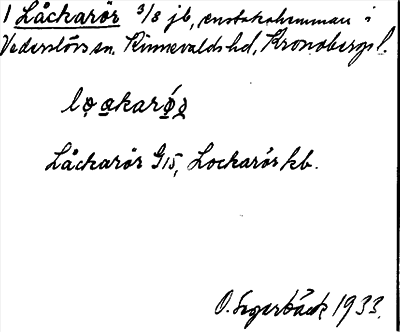 1 Låckarör 3/8 jb, enstakahemman i
Vederslövs sn. Kinnevalds hd, Kronobergs l.
Låckarör G15, Lockarör kb.
O. Segerbäck 1933.